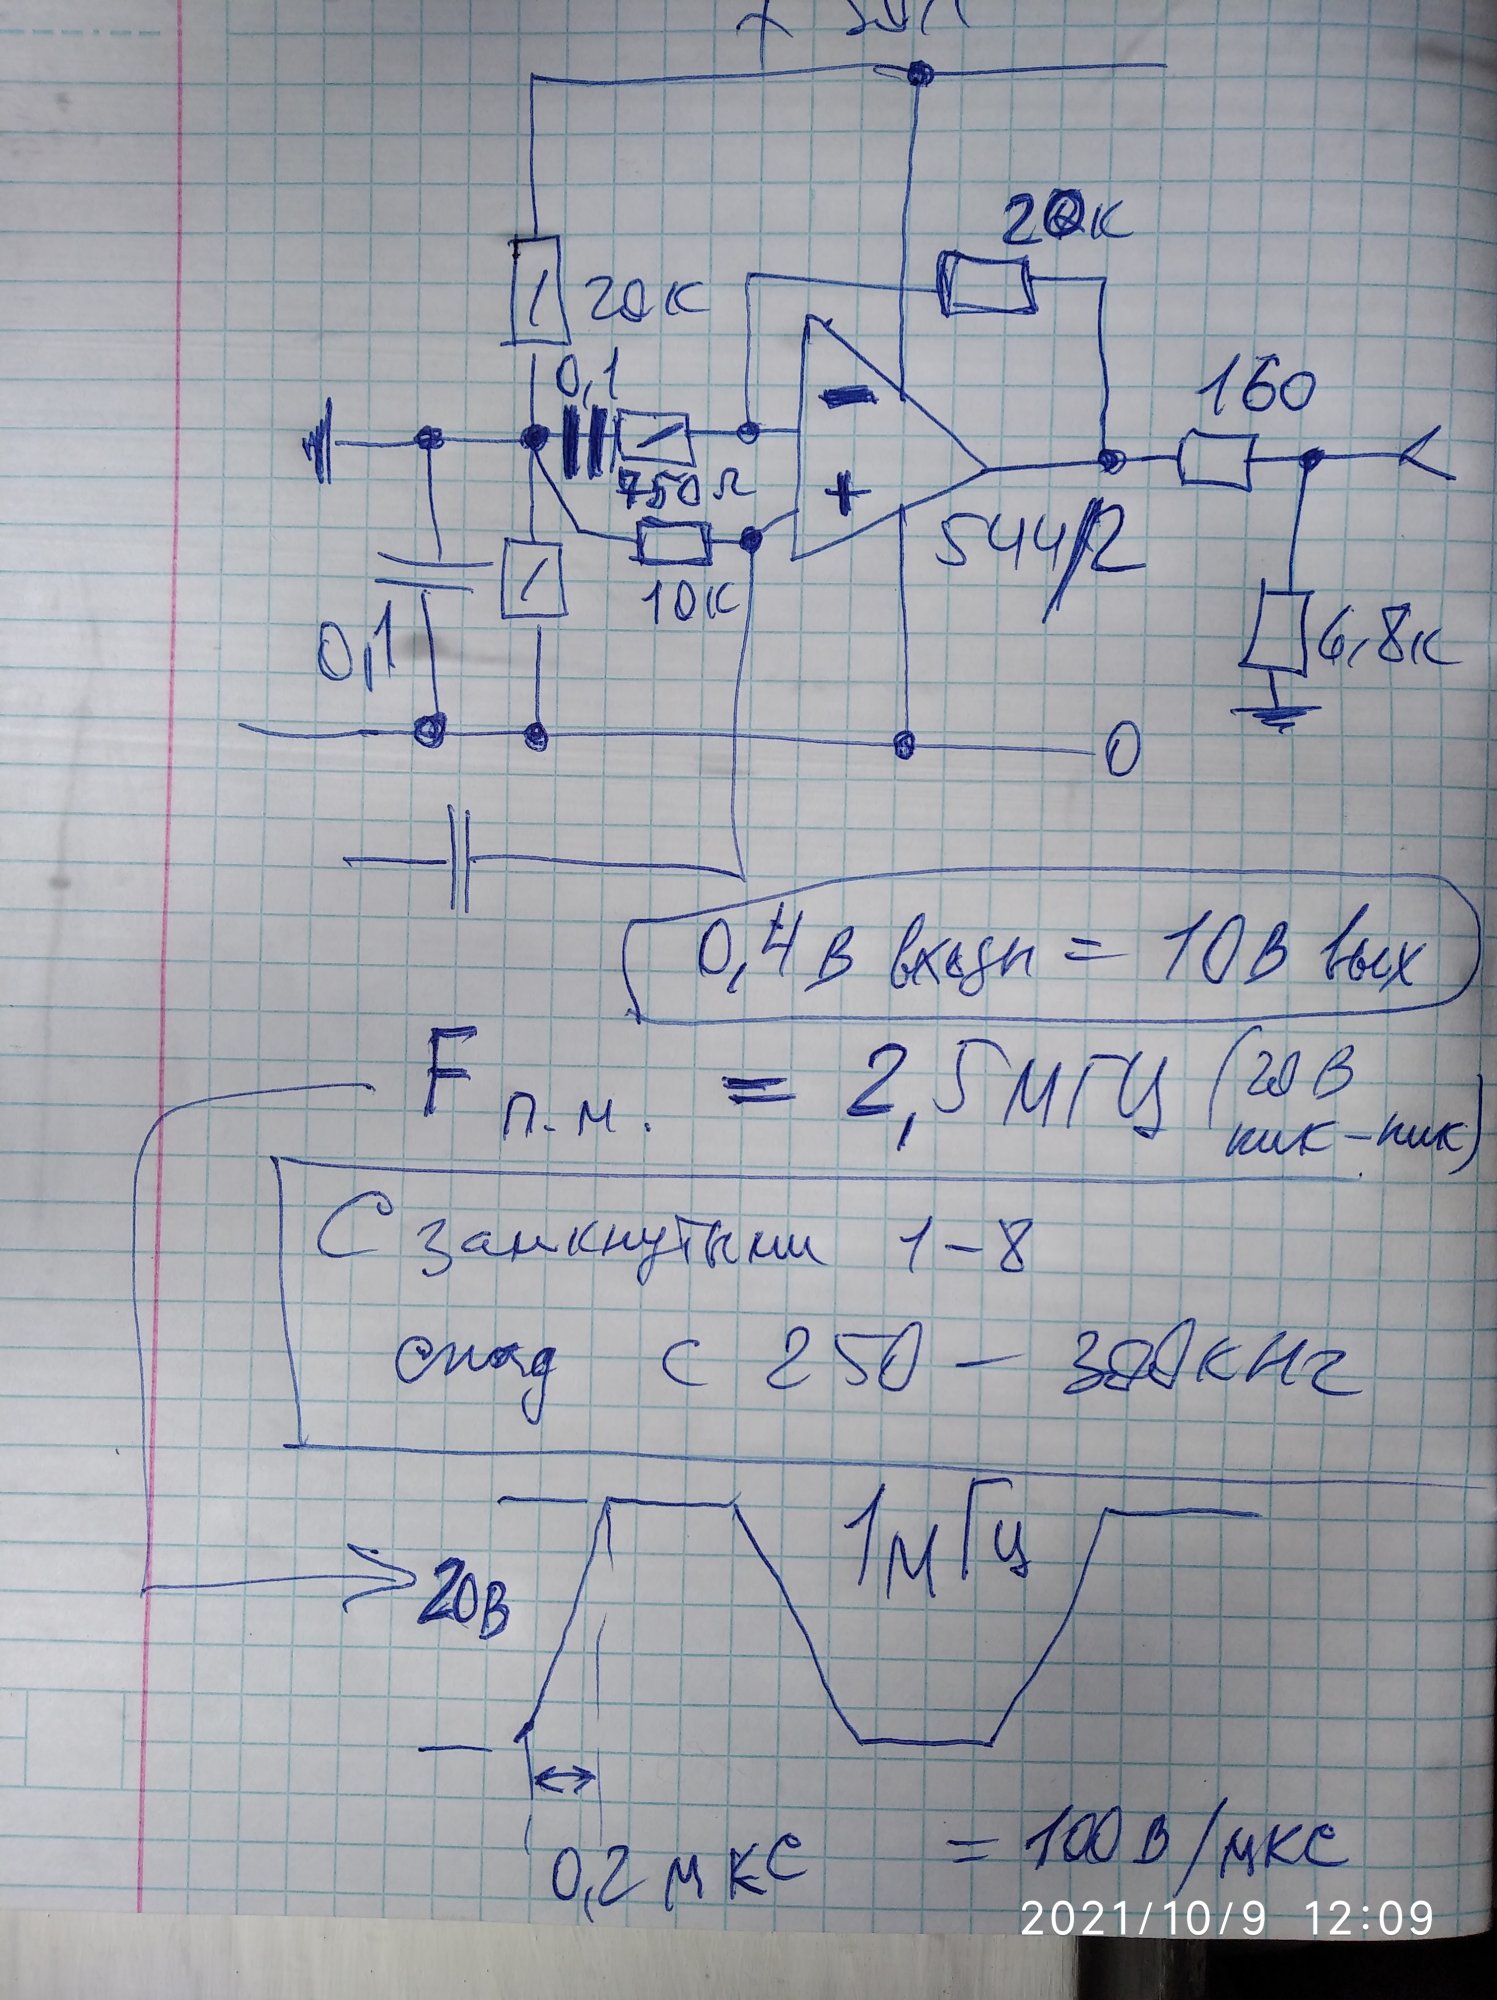 20к
20к
0,1
160
−
750Ω
+
544/2
10к
0,1
6,8к
0
0,4в входн = 10В вых
F п.м. = 2,5МГЦ (20В
пик-пик)
С замкнутыми 1-8
спад с 250 – 300кHг
1мГц
20в
0,2мкс = 100В/мкс
2021/10/9 12:09